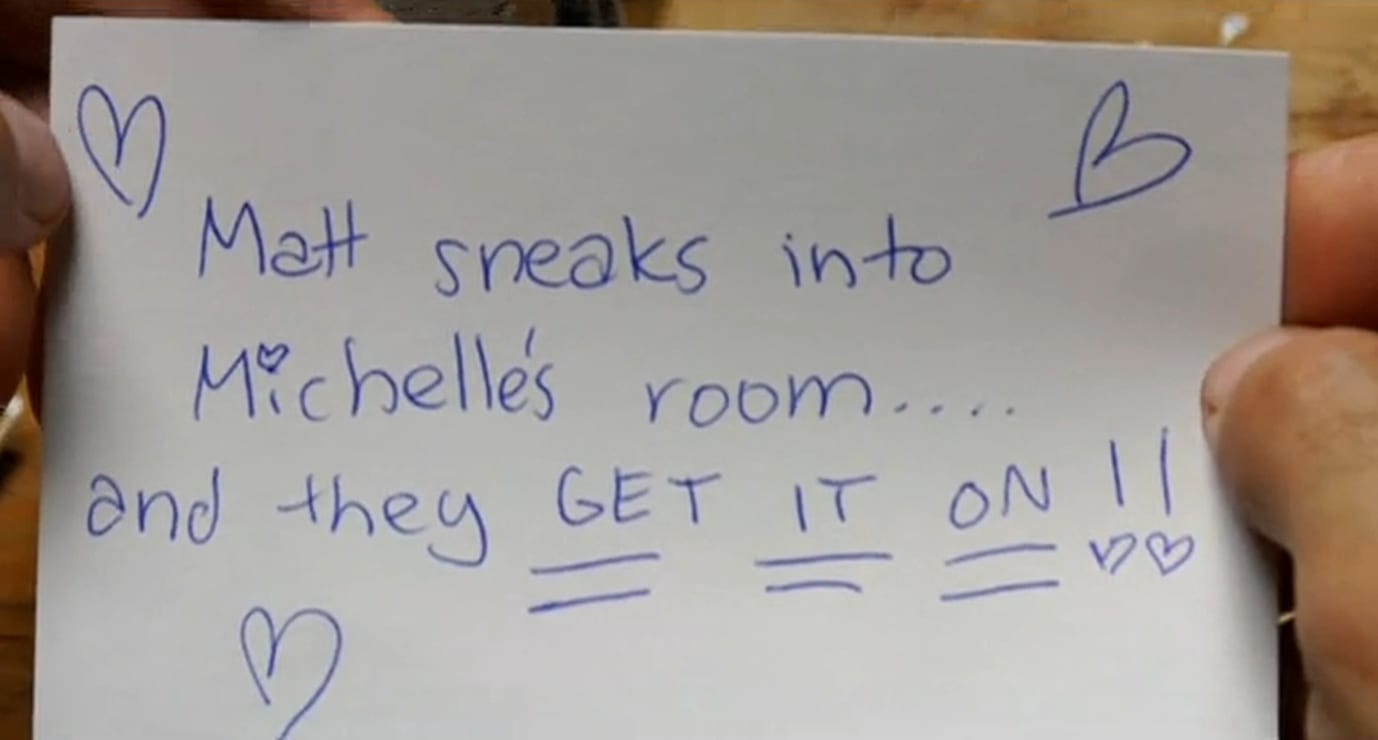 Matt sneaks into
Michelle's room....
and they GET IT ON !!